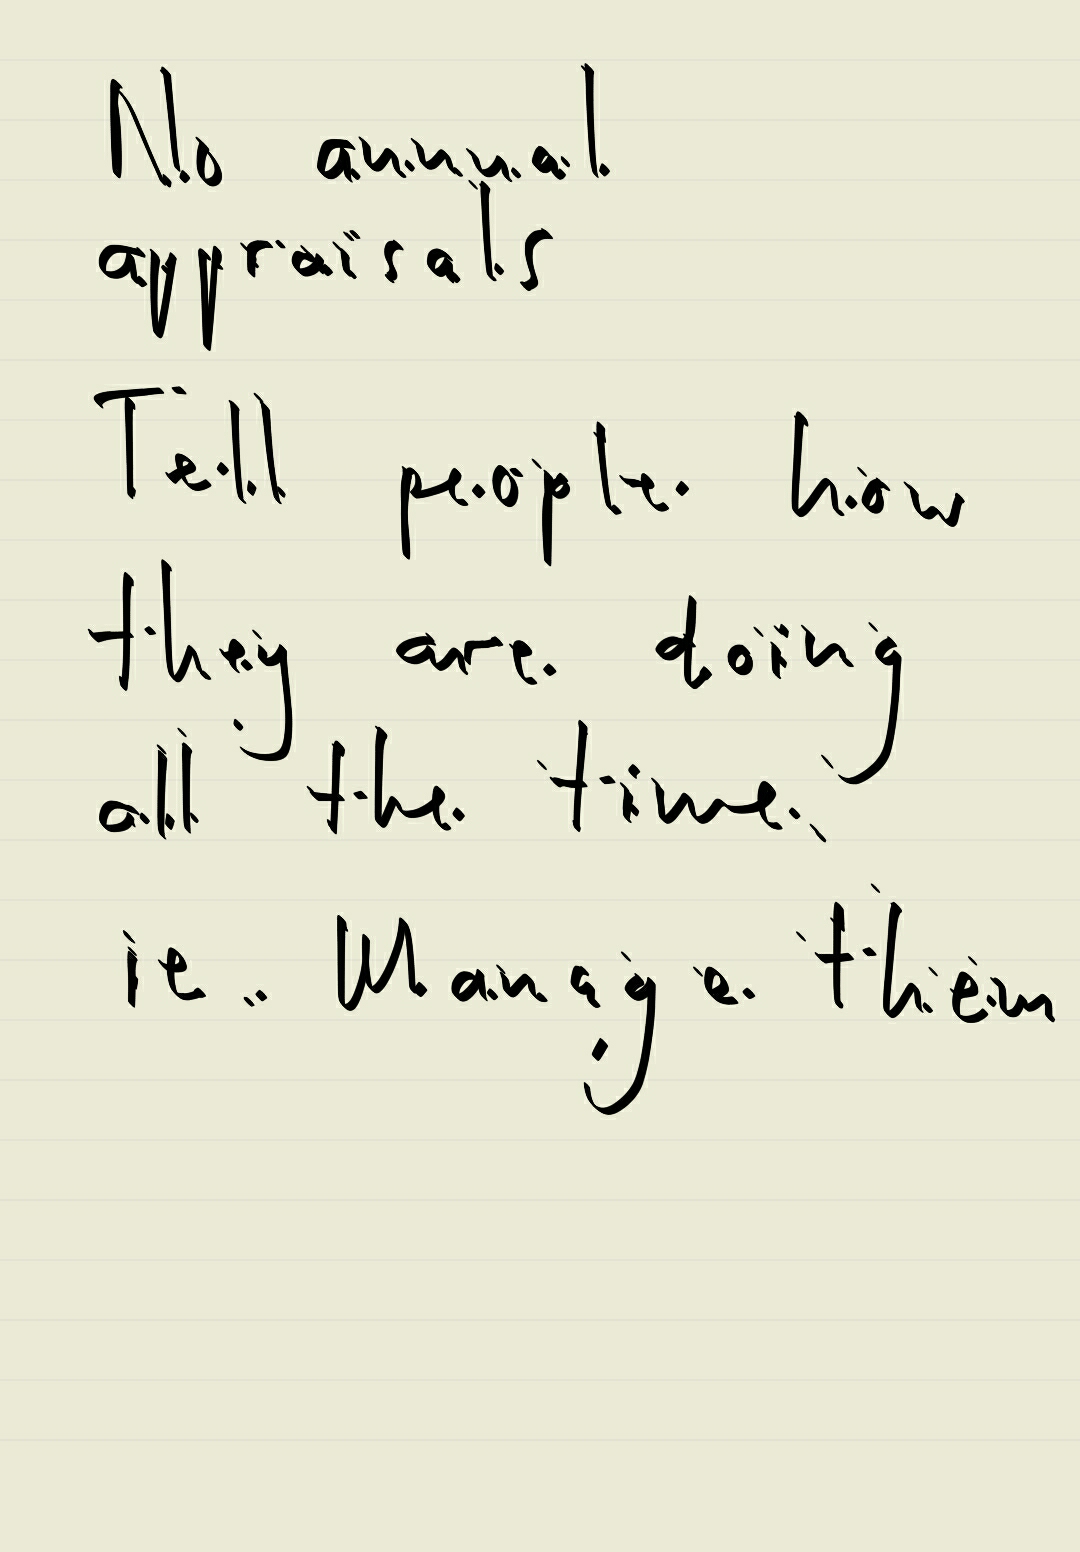 No annual
appraisals
Tell people how
they are doing
all the time.
ie.. Manage them